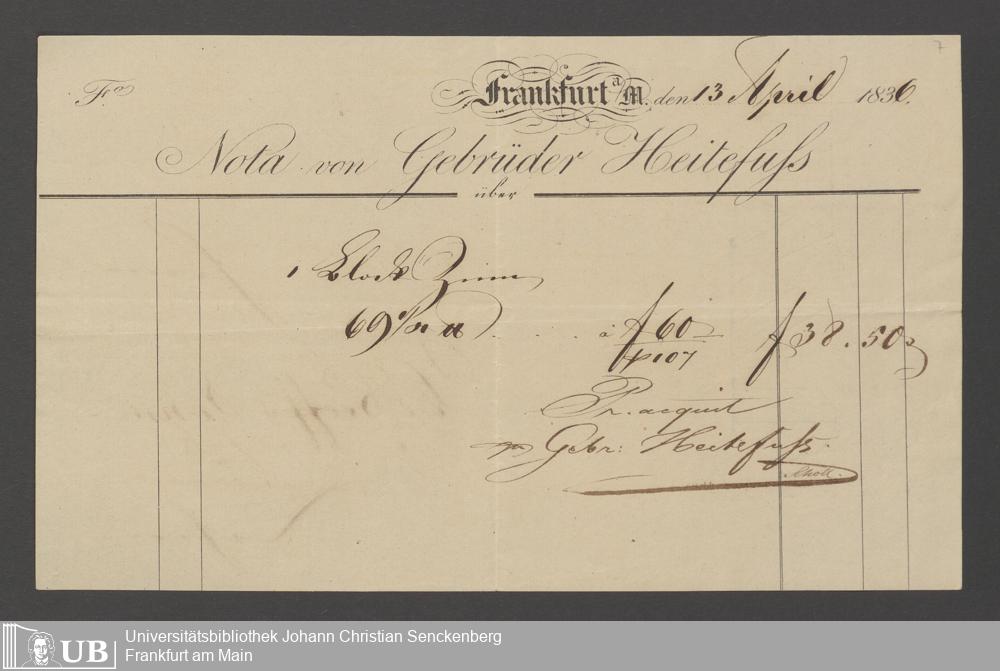 7
Fº Frankfurt a M. den 13 April 1836.
Nota von Gebrüder Heitefuss
über
1 Block Zinn
69 ½ ℔ à f 60 f 38.50
107
Pr. acquit
Gebr: Heitefuss.
UB Universitätsbibliothek Johann Christian Senckenberg
Frankfurt am Main